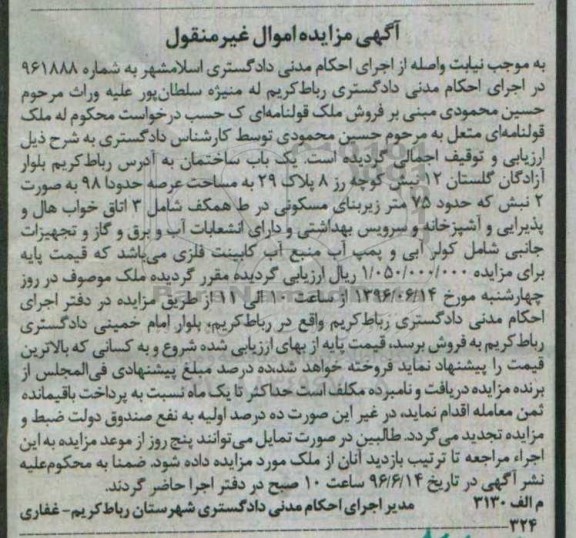 آگهی مزایده اموال غیرمنقول
به موجب نیابت واصله از اجرای احکام مدنی دادگستری اسلامشهر به شماره ۹۶۱۸۸۸
در اجرای احکام مدنی دادگستری رباط‌کریم له منیژه سلطان‌پور علیه وراث مرحوم
حسین محمودی مبنی بر فروش ملک قولنامه‌ای ک حسب درخواست محکوم له ملک
قولنامه‌ای متعل به مرحوم حسین محمودی توسط کارشناس دادگستری به شرح ذیل
ارزیابی و توقیف اجمالی گردیده است. یک باب ساختمان به آدرس رباط‌کریم بلوار
آزادگان گلستان ۱۲ نبش کوچه رز ۸ پلاک ۲۹ به مساحت عرصه حدودا ۹۸ به صورت
۲ نبش که حدود ۷۵ متر زیربنای مسکونی در ط همکف شامل ۳ اتاق خواب هال و
پذیرایی و آشپزخانه و سرویس بهداشتی و دارای انشعابات آب و برق و گاز و تجهیزات
جانبی شامل کولر آبی و پمپ آب منبع آب کابینت فلزی می‌باشد که قیمت پایه
برای مزایده ۱/۰۵۰/۰۰۰/۰۰۰ ریال ارزیابی گردیده مقرر گردیده ملک موصوف در روز
چهارشنبه مورخ ۱۳۹۶/۰۶/۱۴ از ساعت ۱۰ الی ۱۱ از طریق مزایده در دفتر اجرای
احکام مدنی دادگستری رباط‌کریم واقع در رباط‌کریم، بلوار امام خمینی دادگستری
رباط‌کریم به فروش برسد، قیمت پایه از بهای ارزیابی شده شروع و به کسانی که بالاترین
قیمت را پیشنهاد نماید فروخته خواهد شد،ده درصد مبلغ پیشنهادی فی‌المجلس از
برنده مزایده دریافت و نامبرده مکلف است حداکثر تا یک ماه نسبت به پرداخت باقیمانده
ثمن معامله اقدام نماید، در غیر این صورت ده درصد اولیه به نفع صندوق دولت ضبط و
مزایده تجدید می‌گردد. طالبین در صورت تمایل می‌توانند پنج روز از موعد مزایده به این
اجراء مراجعه تا ترتیب بازدید آنان از ملک مورد مزایده داده شود. ضمنا به محکوم‌علیه
نشر آگهی در تاریخ ۹۶/۶/۱۴ ساعت ۱۰ صبح در دفتر اجرا حاضر گردند.
م الف ۳۱۳۰ مدیر اجرای احکام مدنی دادگستری شهرستان رباط‌کریم- غفاری
۳۲۴